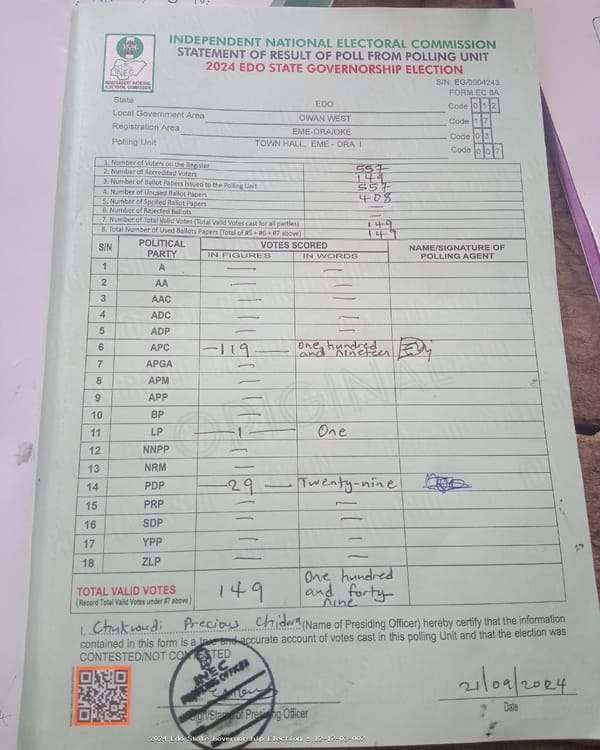 INDEPENDENT NATIONAL ELECTORAL COMMISSION
STATEMENT OF RESULT OF POLL FROM POLLING UNIT
2024 EDO STATE GOVERNORSHIP ELECTION
INEC
INDEPENDENT NATIONAL
ELECTORAL COMMISSION
S/N: EG/0004243
FORM EC 8A
State EDO Code 0 1 2
Local Government Area OWAN WEST Code 1 7
Registration Area EME-ORA/OKE Code 0 3
Polling Unit TOWN HALL, EME - ORA I Code 0 0 7
1. Number of Voters on the Register 557
2. Number of Accredited Voters 149
3. Number of Ballot Papers Issued to the Polling Unit 557
4. Number of Unused Ballot Papers 408
5. Number of Spoiled Ballot Papers —
6. Number of Rejected Ballots —
7. Number of Total Valid Votes (Total Valid Votes cast for all parties) 149
8. Total Number of Used Ballots Papers (Total of #5 + #6 + #7 above) 149
S/N POLITICAL PARTY VOTES SCORED NAME/SIGNATURE OF POLLING AGENT
IN FIGURES IN WORDS
1 A — —
2 AA — —
3 AAC — —
4 ADC — —
5 ADP — —
6 APC —119— One hundred and nineteen
7 APGA —
8 APM —
9 APP —
10 BP —
11 LP —1— One
12 NNPP —
13 NRM —
14 PDP —29— Twenty-nine
15 PRP — —
16 SDP — —
17 YPP — —
18 ZLP — —
ORIGINAL
TOTAL VALID VOTES 149 One hundred and forty nine
(Record Total Valid Votes under #7 above)
I, Chukwudi Precious Chidera (Name of Presiding Officer) hereby certify that the information
contained in this form is a true and accurate account of votes cast in this polling Unit and that the election was
CONTESTED/NOT CONTESTED
INEC
PRESIDING OFFICER
21/09/2024
Sign/Stamp of Presiding Officer Date
2024 Edo State Governorship Election - 12-17-03-007